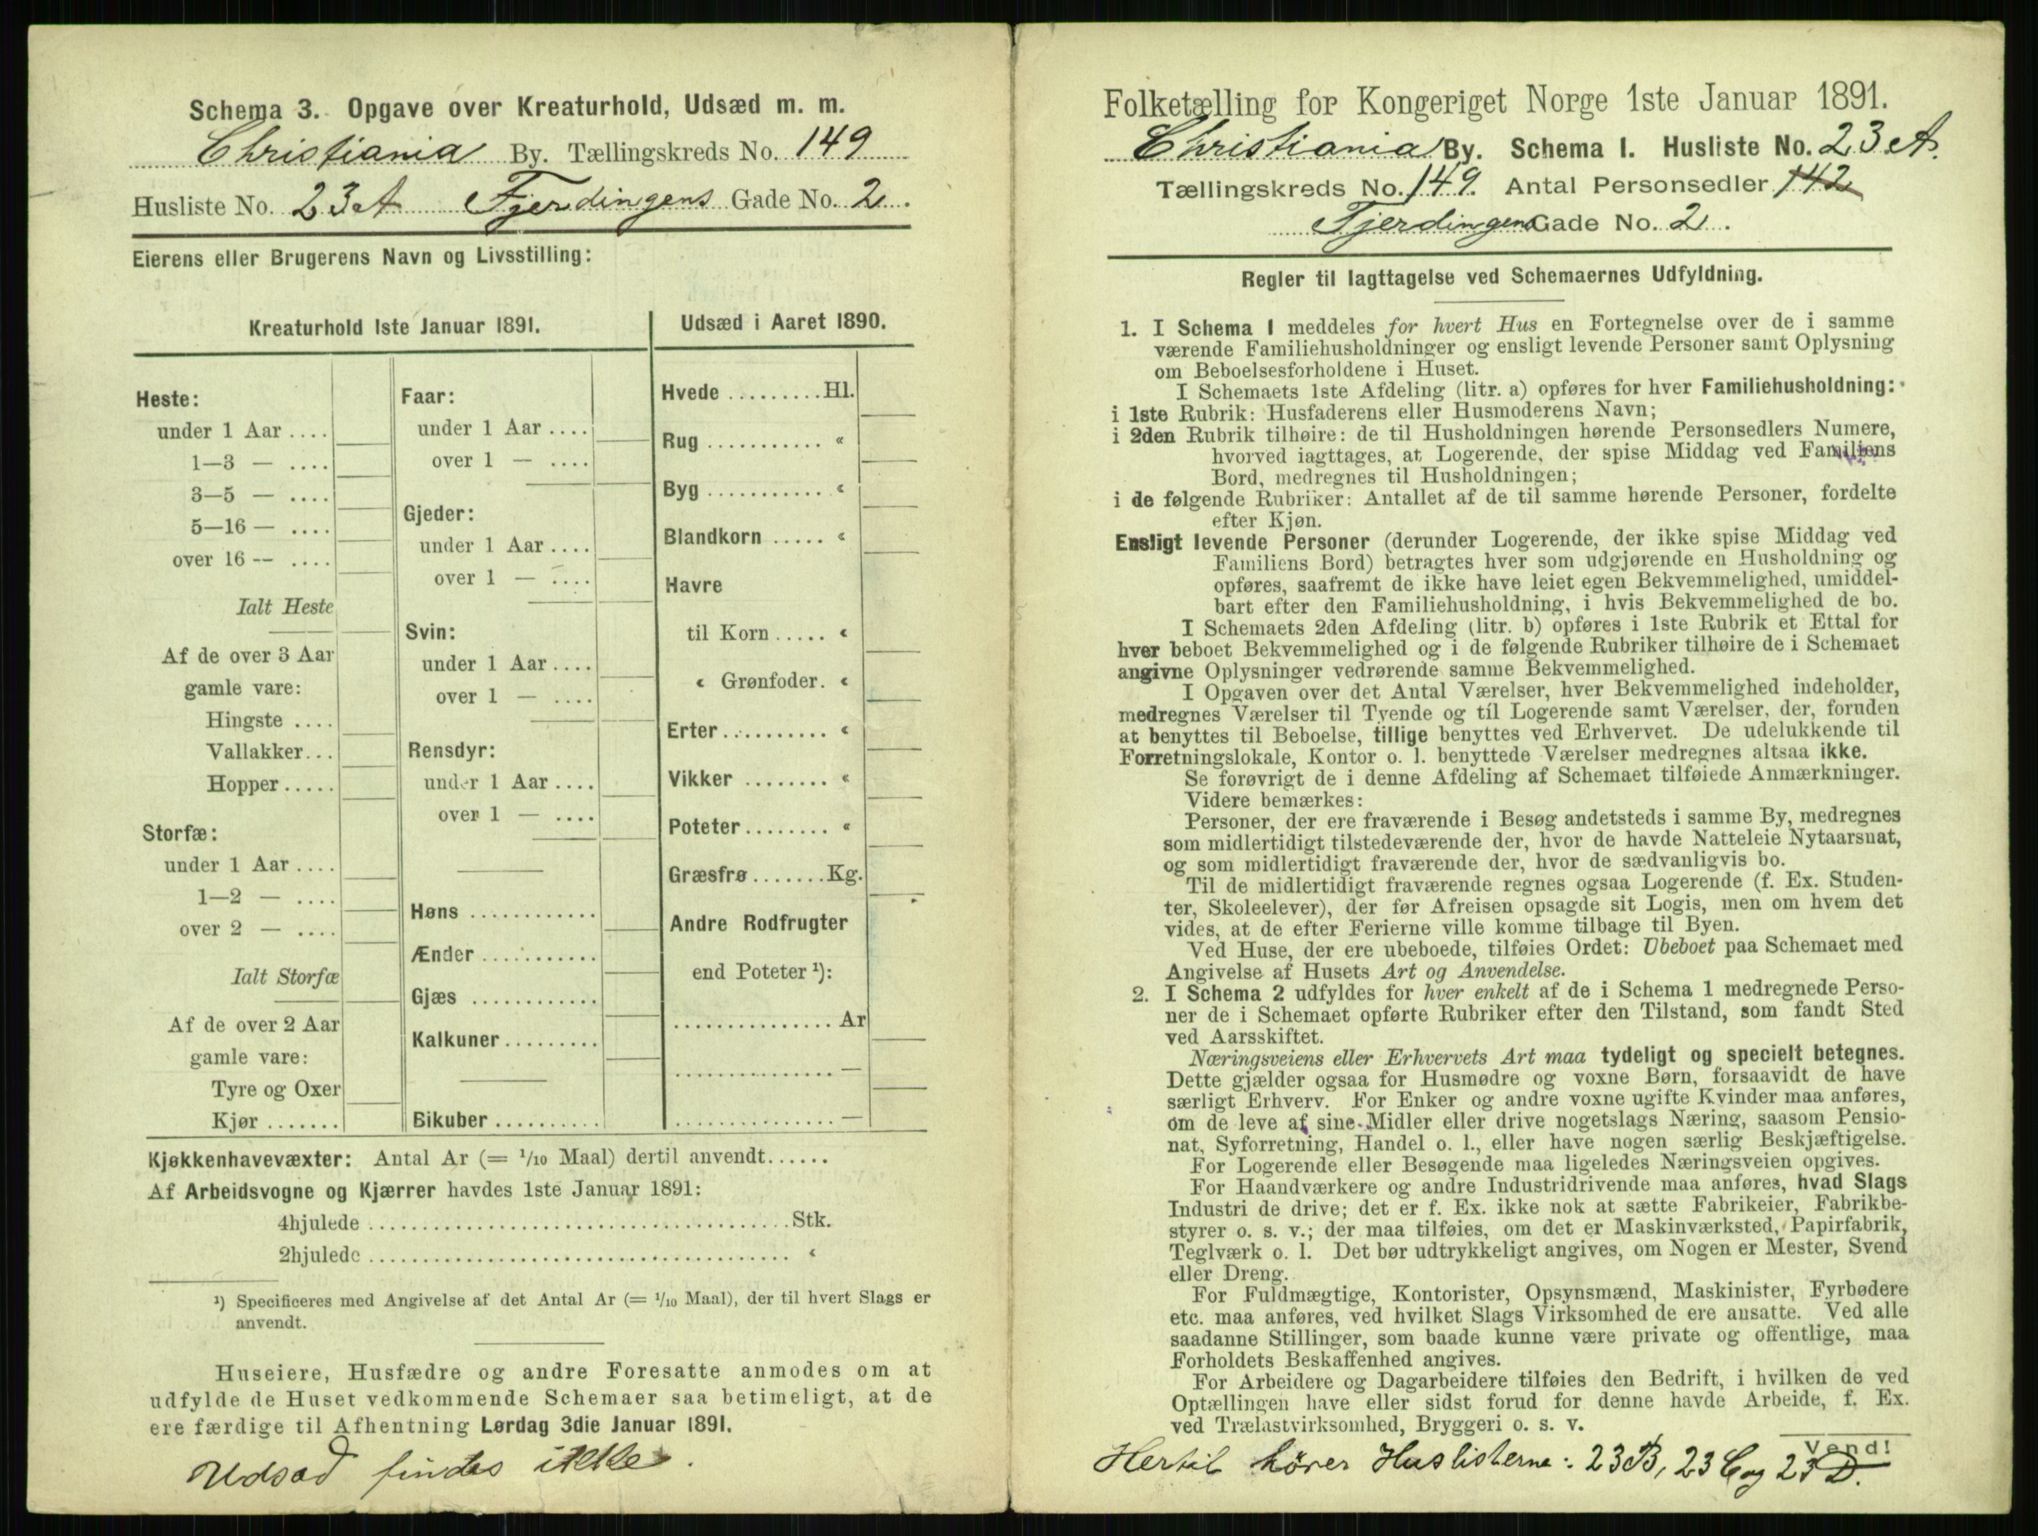 Schema 3. Opgave over Kreaturhold, Udsæd m. m.
Christiania By. Tællingskreds No. 149
Husliste No. 23 A Fjerdingens Gade No. 2.
Eierens eller Brugerens Navn og Livsstilling:
Kreaturhold 1ste Januar 1891.
Heste:
under 1 Aar ....
1—3 — ....
3—5 — ....
5—16 — ....
over 16 -- ....
Ialt Heste
Af de over 3 Aar
gamle vare:
Hingste ....
Vallakker...
Hopper.....
Storfæ:
under 1 Aar....
1—2 — ....
over 2 — ....
Ialt Storfæ
Af de over 2 Aar
gamle vare:
Tyre og Oxer
Kjør .......
Faar:
under 1 Aar ....
over 1 — ....
Gjeder:
under 1 Aar....
over 1 — ....
Svin:
under 1 Aar....
over 1 — ....
Rensdyr:
under 1 Aar ....
over 1 — ....
Høns ............
Ænder ...........
Gjæs ............
Kalkuner.........
Bikuber ..........
Udsæd i Aaret 1890.
Hvede .........Hl.
Rug ........... «
Byg ........... «
Blandkorn ..... «
Havre
til Korn..... «
« Grønfoder. «
Erter.......... «
Vikker ........ «
Poteter........ «
Græsfrø.......Kg.
Andre Rodfrugter
end Poteter ¹):
...............Ar
............... —
............... —
Kjøkkenhavevæxter: Antal Ar (= 1/10 Maal) dertil anvendt......
Af Arbeidsvogne og Kjærrer havdes 1ste Januar 1891:
4hjulede ........................................Stk.
2hjulede ........................................ «
¹) Specificeres med Angivelse af det Antal Ar (= 1/10 Maal), der til hvert Slags er
anvendt.
Huseiere, Husfædre og andre Foresatte anmodes om at
udfylde de Huset vedkommende Schemaer saa betimeligt, at de
ere færdige til Afhentning Lørdag 3die Januar 1891.
Udsæd findes ikke.
Folketælling for Kongeriget Norge 1ste Januar 1891.
Christiania By. Schema I. Husliste No. 23 A.
Tællingskreds No. 149. Antal Personsedler 142
Fjerdingens Gade No. 2.
Regler til Iagttagelse ved Schemaernes Udfyldning.
1. I Schema 1 meddeles for hvert Hus en Fortegnelse over de i samme
værende Familiehusholdninger og ensligt levende Personer samt Oplysning
om Beboelsesforholdene i Huset.
I Schemaets 1ste Afdeling (litr. a) opføres for hver Familiehusholdning:
i 1ste Rubrik: Husfaderens eller Husmoderens Navn;
i 2den Rubrik tilhøire: de til Husholdningen hørende Personsedlers Numere,
hvorved iagttages, at Logerende, der spise Middag ved Familiens
Bord, medregnes til Husholdningen;
i de følgende Rubriker: Antallet af de til samme hørende Personer, fordelte
efter Kjøn.
Ensligt levende Personer (derunder Logerende, der ikke spise Middag ved
Familiens Bord) betragtes hver som udgjørende en Husholdning og
opføres, saafremt de ikke have leiet egen Bekvemmelighed, umiddel-
bart efter den Familiehusholdning, i hvis Bekvemmelighed de bo.
I Schemaets 2den Afdeling (litr. b) opføres i 1ste Rubrik et Ettal for
hver beboet Bekvemmelighed og i de følgende Rubriker tilhøire de i Schemaet
angivne Oplysninger vedrørende samme Bekvemmelighed.
I Opgaven over det Antal Værelser, hver Bekvemmelighed indeholder,
medregnes Værelser til Tyende og til Logerende samt Værelser, der, foruden
at benyttes til Beboelse, tillige benyttes ved Erhvervet. De udelukkende til
Forretningslokale, Kontor o. l. benyttede Værelser medregnes altsaa ikke.
Se forøvrigt de i denne Afdeling af Schemaet tilføiede Anmærkninger.
Videre bemærkes:
Personer, der ere fraværende i Besøg andetsteds i samme By, medregnes
som midlertidigt tilstedeværende der, hvor de havde Natteleie Nytaarsnat,
og som midlertidigt fraværende der, hvor de sædvanligvis bo.
Til de midlertidigt fraværende regnes ogsaa Logerende (f. Ex. Studen-
ter, Skoleelever), der før Afreisen opsagde sit Logis, men om hvem det
vides, at de efter Ferierne ville komme tilbage til Byen.
Ved Huse, der ere ubeboede, tilføies Ordet: Ubeboet paa Schemaet med
Angivelse af Husets Art og Anvendelse.
2. I Schema 2 udfyldes for hver enkelt af de i Schema 1 medregnede Perso-
ner de i Schemaet opførte Rubriker efter den Tilstand, som fandt Sted
ved Aarsskiftet.
Næringsveiens eller Erhvervets Art maa tydeligt og specielt betegnes.
Dette gjælder ogsaa for Husmødre og voxne Børn, forsaavidt de have
særligt Erhverv. For Enker og andre voxne ugifte Kvinder maa anføres,
om de leve af sine Midler eller drive nogetslags Næring, saasom Pensio-
nat, Syforretning, Handel o. l., eller have nogen særlig Beskjæftigelse.
For Logerende eller Besøgende maa ligeledes Næringsveien opgives.
For Haandværkere og andre Industridrivende maa anføres, hvad Slags
Industri de drive; det er f. Ex. ikke nok at sætte Fabrikeier, Fabrikbe-
styrer o. s. v.; der maa tilføies, om det er Maskinværksted, Papirfabrik,
Teglværk o. l. Det bør udtrykkeligt angives, om Nogen er Mester, Svend
eller Dreng.
For Fuldmægtige, Kontorister, Opsynsmænd, Maskinister, Fyrbødere
etc. maa anføres, ved hvilket Slags Virksomhed de ere ansatte. Ved alle
saadanne Stillinger, som baade kunne være private og offentlige, maa
Forholdets Beskaffenhed angives.
For Arbeidere og Dagarbeidere tilføies den Bedrift, i hvilken de ved
Optællingen have eller sidst forud for denne havde Arbeide, f. Ex.
ved Trælastvirksomhed, Bryggeri o. s. v.
Vend!
Hertil hører Huslisterne: 23 B, 23 C og 23 D.